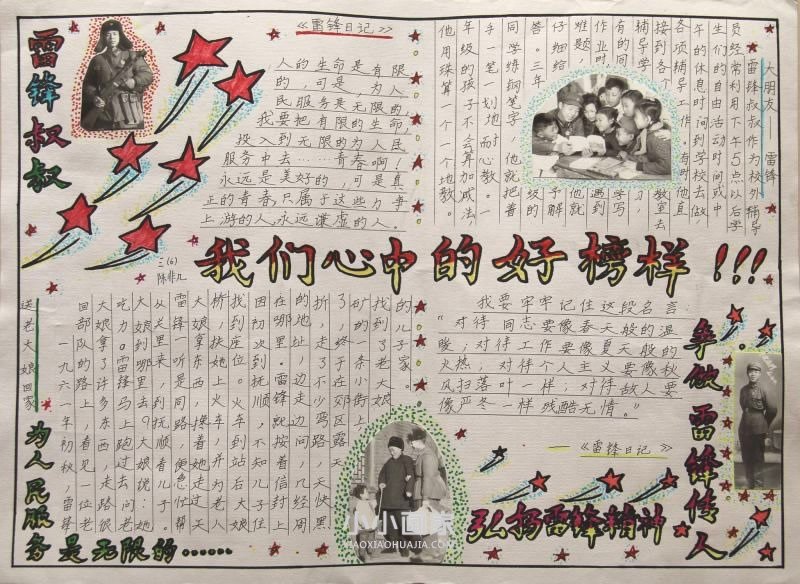 雷锋叔叔
《雷锋日记》
人的生命是有限
的，可是，为人
民服务是无限的，
我要把有限的生命，
投入到无限的为人民
服务中去……青春啊！
永远是美好的，可是真
正的青春只属于这些力争
上游的人，永远谦虚的人。
大朋友 雷锋
雷锋叔叔作为校外辅导
员经常利用下午5点以后学
生们的自由活动时间或中
午的休息时间到学校去做
各项辅导工作。有时他直
接到各个教室去
辅导学习
有的同学写
作业时遇到
难题，他就
仔细给予解
答。三年级的
同学练钢笔字，他就把着
手一笔一划地耐心教。一
年级的孩子不会算加减法，
他用珠算一个一个地教。
三(6)
陈非凡
我们心中的好榜样!!!
送老大娘回家
一九六一年初秋，雷锋
回部队的路上，看见一位老
大娘拿了许多东西，走路很
吃力。雷锋马上跑过去问老
大娘到哪里去？大娘说：她
从关里来，到抚顺看儿子。
雷锋一听是同路，便急忙帮
大娘拿东西，搀着她走过天
桥，扶她上火车，并为老人
找到座位。火车到站后大娘
因初次到抚顺，不知儿子住
在哪里。雷锋就按着信封上
的地址，边走边问，几经周
折，走了不少弯路，天快黑
了，终于在郊区露天
矿的一条小街上，
找到了老大娘
的儿子家。
为人民服
务是无限的……
我要牢牢记住这段名言：
“对待同志要像春天般的温
暖；对待工作要像夏天般的
火热；对待个人主义要像秋
风扫落叶一样；对待敌人要
像严冬一样残酷无情。”
——《雷锋日记》
争做雷锋传人
弘扬雷锋精神
小小画家
XIAOXIAOHUAJIA.COM